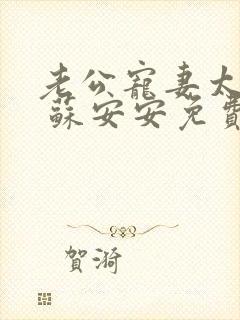 老公寵妻太
蘇安安免費
賀漪